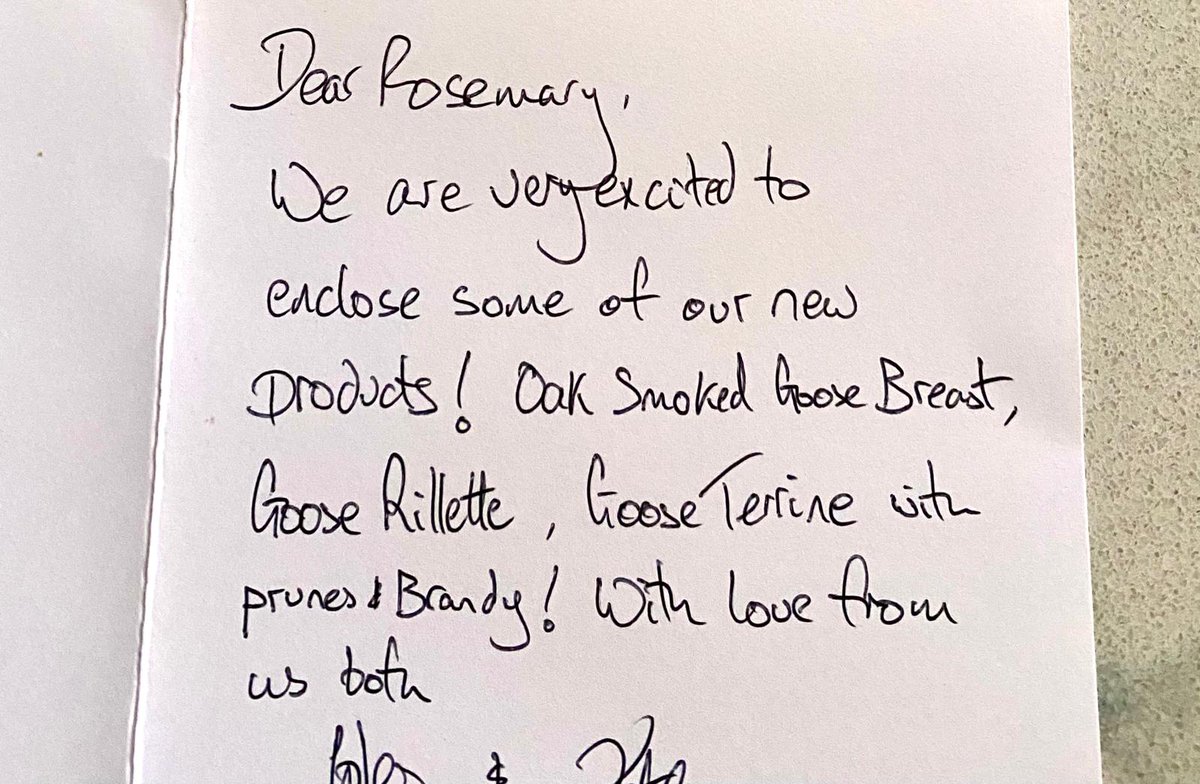 Dear Rosemary,
We are very excited to
enclose some of our new
Products! Oak Smoked Goose Breast,
Goose Rillette, Goose Terrine with
prunes & Brandy! With love from
us both
&